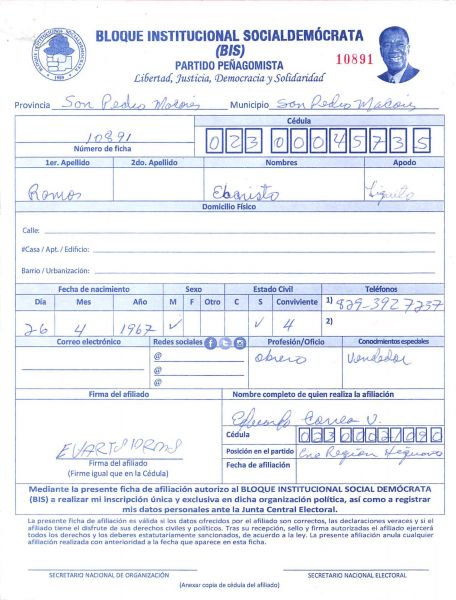 BLOQUE INSTITUCIONAL SOCIALDEMÓCRATA
(BIS)
PARTIDO PEÑAGOMISTA
10891
Libertad, Justicia, Democracia y Solidaridad
Provincia San Pedro Macoris Municipio San Pedro Macoris
Cédula
10891
Número de ficha
023 00045735
1er. Apellido 2do. Apellido Nombres Apodo
Ramos Ebaristo
Domicilio Físico
Calle:
#Casa / Apt. / Edificio:
Barrio / Urbanización:
Fecha de nacimiento Sexo Estado Civil Teléfonos
Día Mes Año M F Otro C S Conviviente 1) 829-392 7237
26 4 1967 ✓ ✓ 4 2)
Correo electrónico Redes sociales Profesión/Oficio Conocimientos especiales
@ obrero vendedor
@
@
Firma del afiliado Nombre completo de quien realiza la afiliación
Correa V.
Cédula
Posición en el partido
Fecha de afiliación
Firma del afiliado
(Firme igual que en la Cédula)
Mediante la presente ficha de afiliación autorizo al BLOQUE INSTITUCIONAL SOCIAL DEMÓCRATA
(BIS) a realizar mi inscripción única y exclusiva en dicha organización política, así como a registrar
mis datos personales ante la Junta Central Electoral.
La presente ficha de afiliación es válida si los datos ofrecidos por el afiliado son correctos, las declaraciones veraces y si el
afiliado tiene el disfrute de sus derechos civiles y políticos. Tras su recepción, sello y firma autorizadas el afiliado ejercerá
todos los derechos y los deberes estatutariamente sancionados, de acuerdo a la ley. La presente afiliación anula cualquier
afiliación realizada con anterioridad a la fecha que aparece en esta ficha.
SECRETARIO NACIONAL DE ORGANIZACIÓN SECRETARIO NACIONAL ELECTORAL
(Anexar copia de cédula del afiliado)